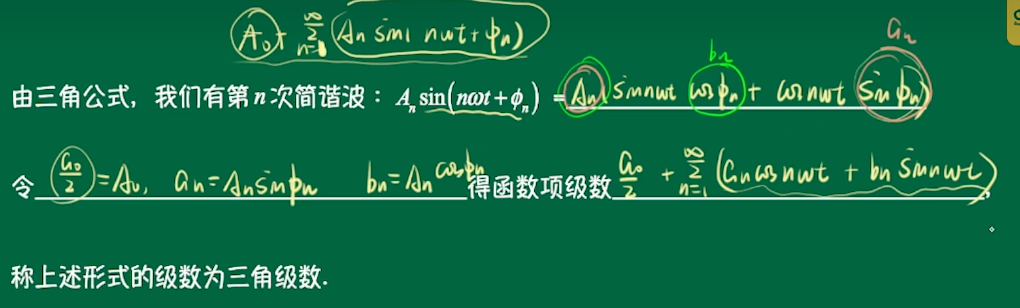 A₀ + ∑_{n=1}^{∞} (Aₙ sin( nωt + ϕₙ)
bₙ
aₙ
由三角公式，我们有第n次简谐波：Aₙsin(nωt+ϕₙ) = Aₙ( sin nωt cos ϕₙ + cos nωt sin ϕₙ)
令 a₀/2 = A₀, aₙ = Aₙ sin ϕₙ bₙ = Aₙ cos ϕₙ 得函数项级数 a₀/2 + ∑_{n=1}^{∞} (aₙ cos nωt + bₙ sin nωt),
称上述形式的级数为三角级数.